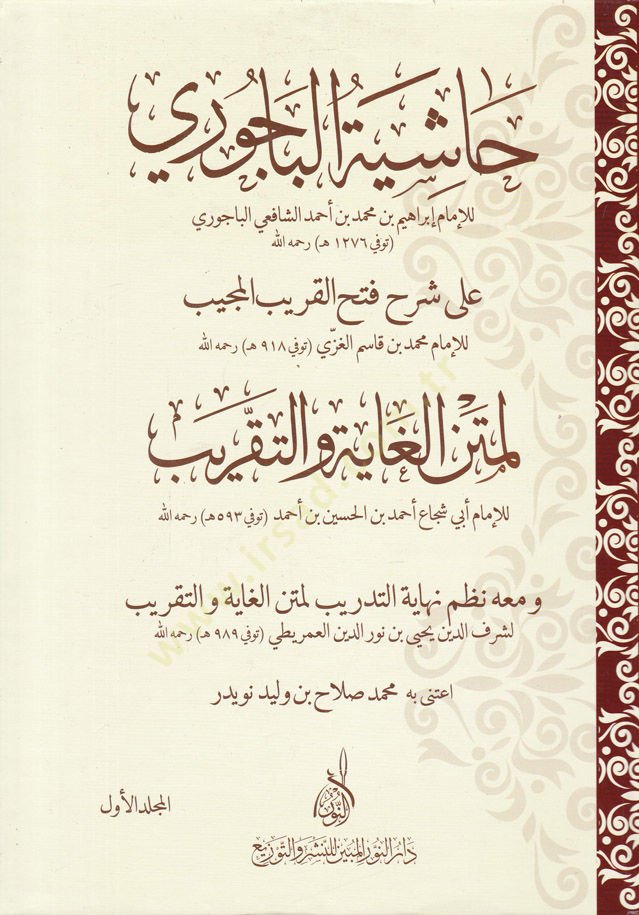 حَاشِيَةُ البَاجُورِي
للإمام إبراهيم بن محمد بن أحمد الشافعي الباجوري
(توفي ١٢٧٦ هـ) رحمه الله
على شرح فتح القريب المجيب
للإمام محمد بن قاسم الغزّي (توفي ٩١٨ هـ) رحمه الله
لمَتْن الغَاية والتقريب
للإمام أبي شجاع أحمد بن الحسين بن أحمد (توفي ٥٩٣ هـ) رحمه الله
ومعه نظم نهاية التدريب لمتن الغاية والتقريب
لشرف الدين يحيى بن نور الدين العمريطي (توفي ٩٨٩ هـ) رحمه الله
اعتنى به محمد صلاح بن وليد نويدر
المجلد الأول
النّور
دار النور المبين للنشر والتوزيع